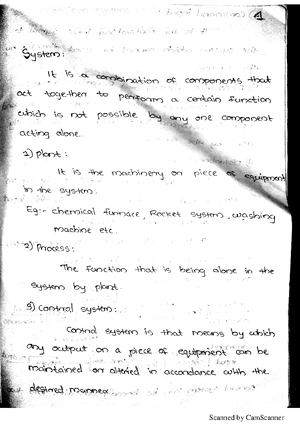 4
System:
It is a combination of components that
act together to perform a certain function
which is not possible by any one component
acting alone.
1) Plant:
It is the machinery on piece of equipment
in the system.
Eg:- chemical furnace, Rocket system, washing
machine etc.
2) Process:
The function that is being alone in the
system by plant.
3) Control system:
Control system is that means by which
any output on a piece of equipment can be
maintained or altered in accordance with the
desired manner.
Scanned by CamScanner